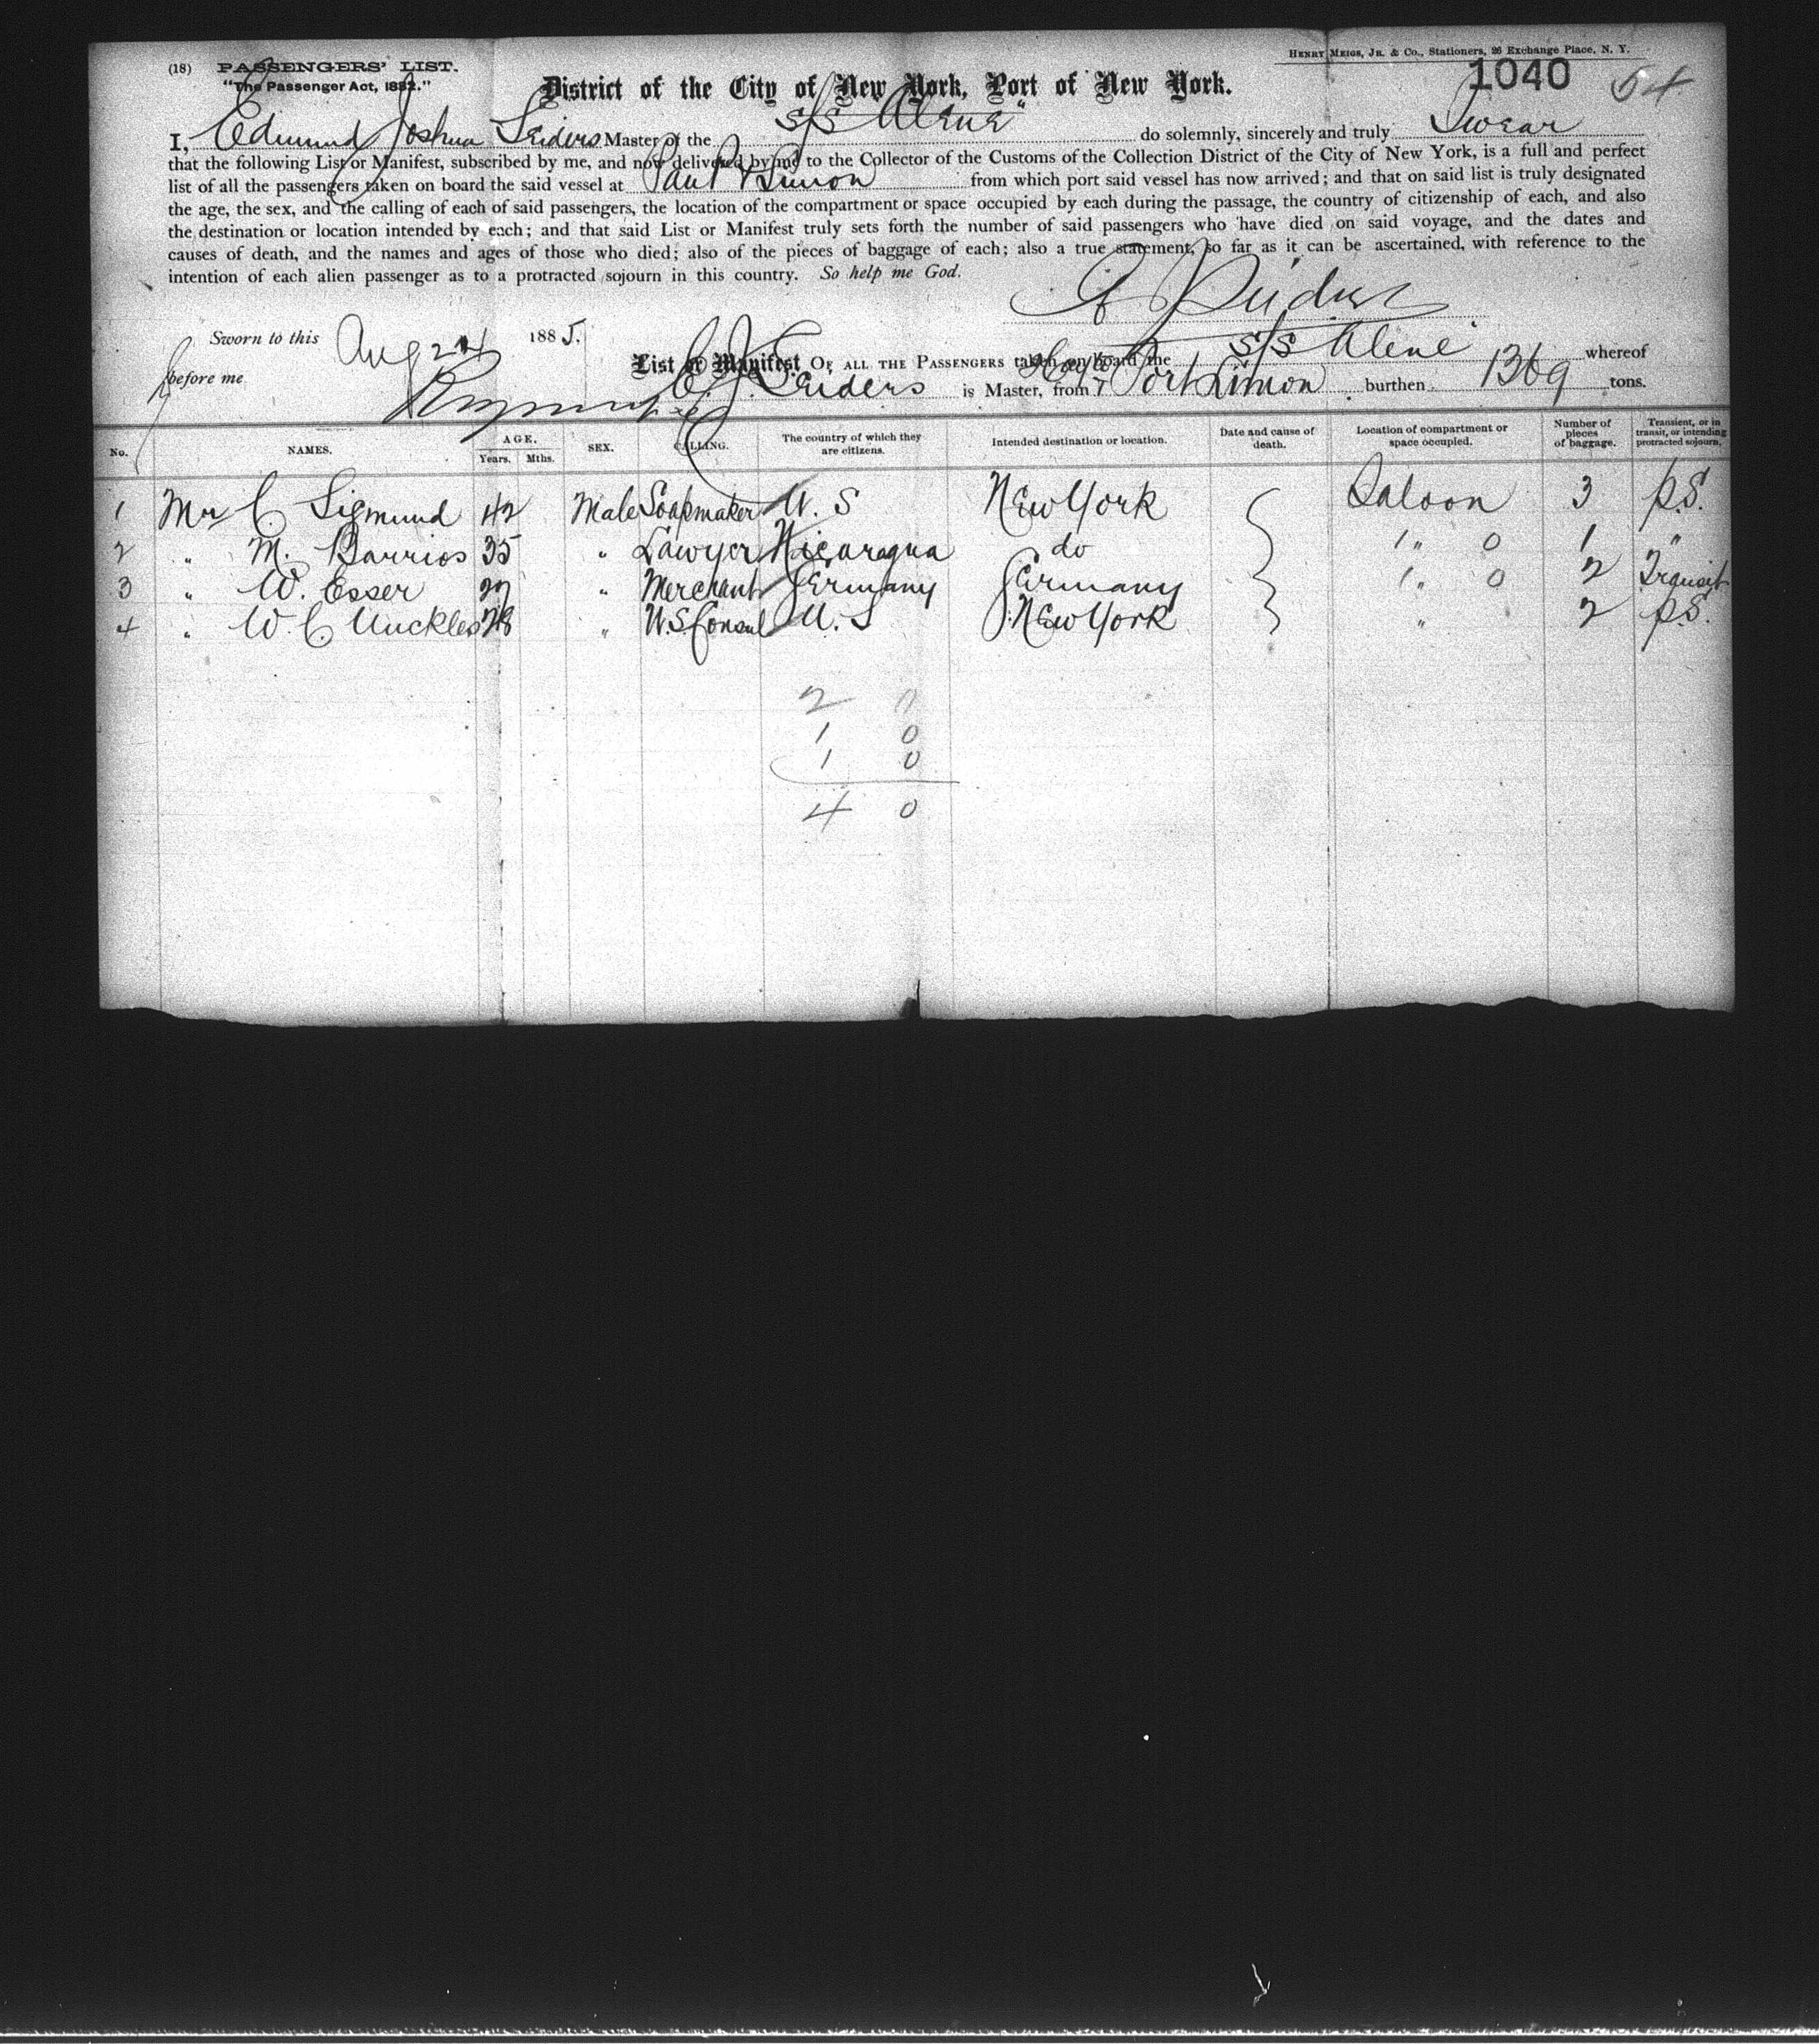 (18) PASSENGERS' LIST.
HENRY MEIGS, JR. & CO., Stationers, 26 Exchange Place, N. Y.
"The Passenger Act, 1882."
District of the City of New York, Port of New York.
1040 64
I, Edmund Joshua Seiders Master of the S/S "Alene" do solemnly, sincerely and truly Swear
that the following List or Manifest, subscribed by me, and now delivered by me to the Collector of the Customs of the Collection District of the City of New York, is a full and perfect
list of all the passengers taken on board the said vessel at Limon from which port said vessel has now arrived; and that on said list is truly designated
the age, the sex, and the calling of each of said passengers, the location of the compartment or space occupied by each during the passage, the country of citizenship of each, and also
the destination or location intended by each; and that said List or Manifest truly sets forth the number of said passengers who have died on said voyage, and the dates and
causes of death, and the names and ages of those who died; also of the pieces of baggage of each; also a true statement, so far as it can be ascertained, with reference to the
intention of each alien passenger as to a protracted sojourn in this country. So help me God.
E J Seiders
Sworn to this Aug 1885.
before me
List or Manifest OF ALL THE PASSENGERS taken on board the S/S Alene whereof
E. J. Seiders is Master, from Port Limon burthen 1369 tons.
No. NAMES. AGE. Years. Mths. SEX. CALLING. The country of which they are citizens. Intended destination or location. Date and cause of death. Location of compartment or space occupied. Number of pieces of baggage. Transient, or in transit, or intending protracted sojourn.
1 Mr C. Sigmund 42 Male Soapmaker U. S New York Saloon 3 P.S.
2 " M. Barrios 35 " Lawyer Nicaragua do 1 " 0 1 "
3 " W. Esser 27 " Merchant Germany Germany 1 " 0 2 Transit
4 " W. C. Unckles 28 " U.S. Consul U. S New York " 2 P.S.
2 0
1 0
1 0
4 0